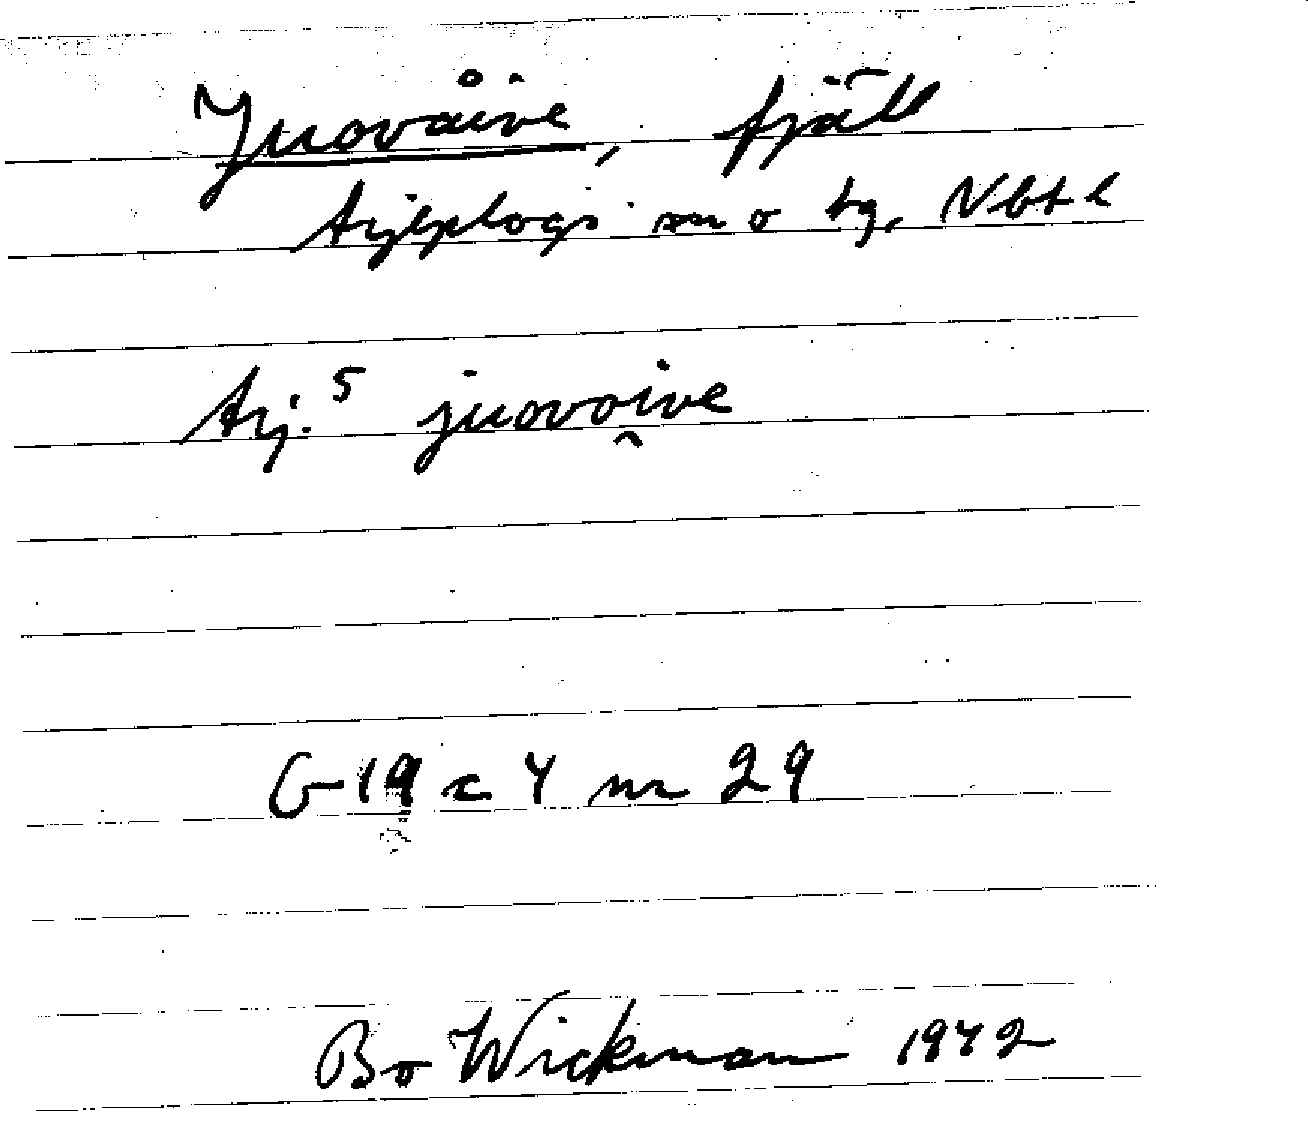 Juovåive, fjäll
Arjeplogs sn o tg, Nbt l
Arj.⁵ juovoi̭ve
G 19 c 4 nr 29
Bo Wickman 1942